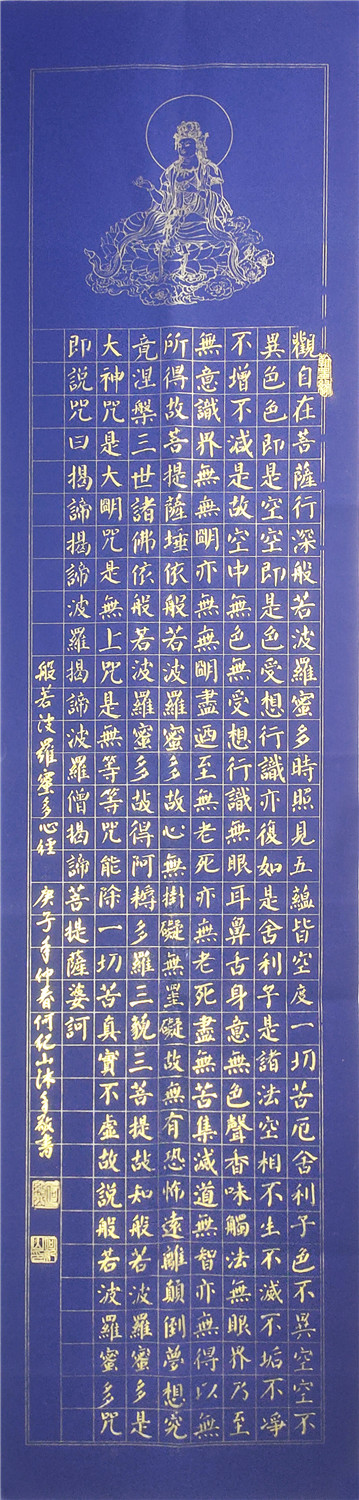 觀自在菩薩行深般若波羅蜜多時照見五蘊皆空度一切苦厄舍利子色不異空空不
異色色即是空空即是色受想行識亦復如是舍利子是諸法空相不生不滅不垢不淨
不增不減是故空中無色無受想行識無眼耳鼻舌身意無色聲香味觸法無眼界乃至
無意識界無無明亦無無明盡迺至無老死亦無老死盡無苦集滅道無智亦無得以無
所得故菩提薩埵依般若波羅蜜多故心無掛礙無罣礙故無有恐怖遠離顛倒夢想究
竟涅槃三世諸佛依般若波羅蜜多故得阿耨多羅三藐三菩提故知般若波羅蜜多是
大神咒是大明咒是無上咒是無等等咒能除一切苦真實不虛故說般若波羅蜜多咒
即說咒曰揭諦揭諦波羅揭諦波羅僧揭諦菩提薩婆訶
般若波羅蜜多心經 庚子年仲春何紀山沐手敬書